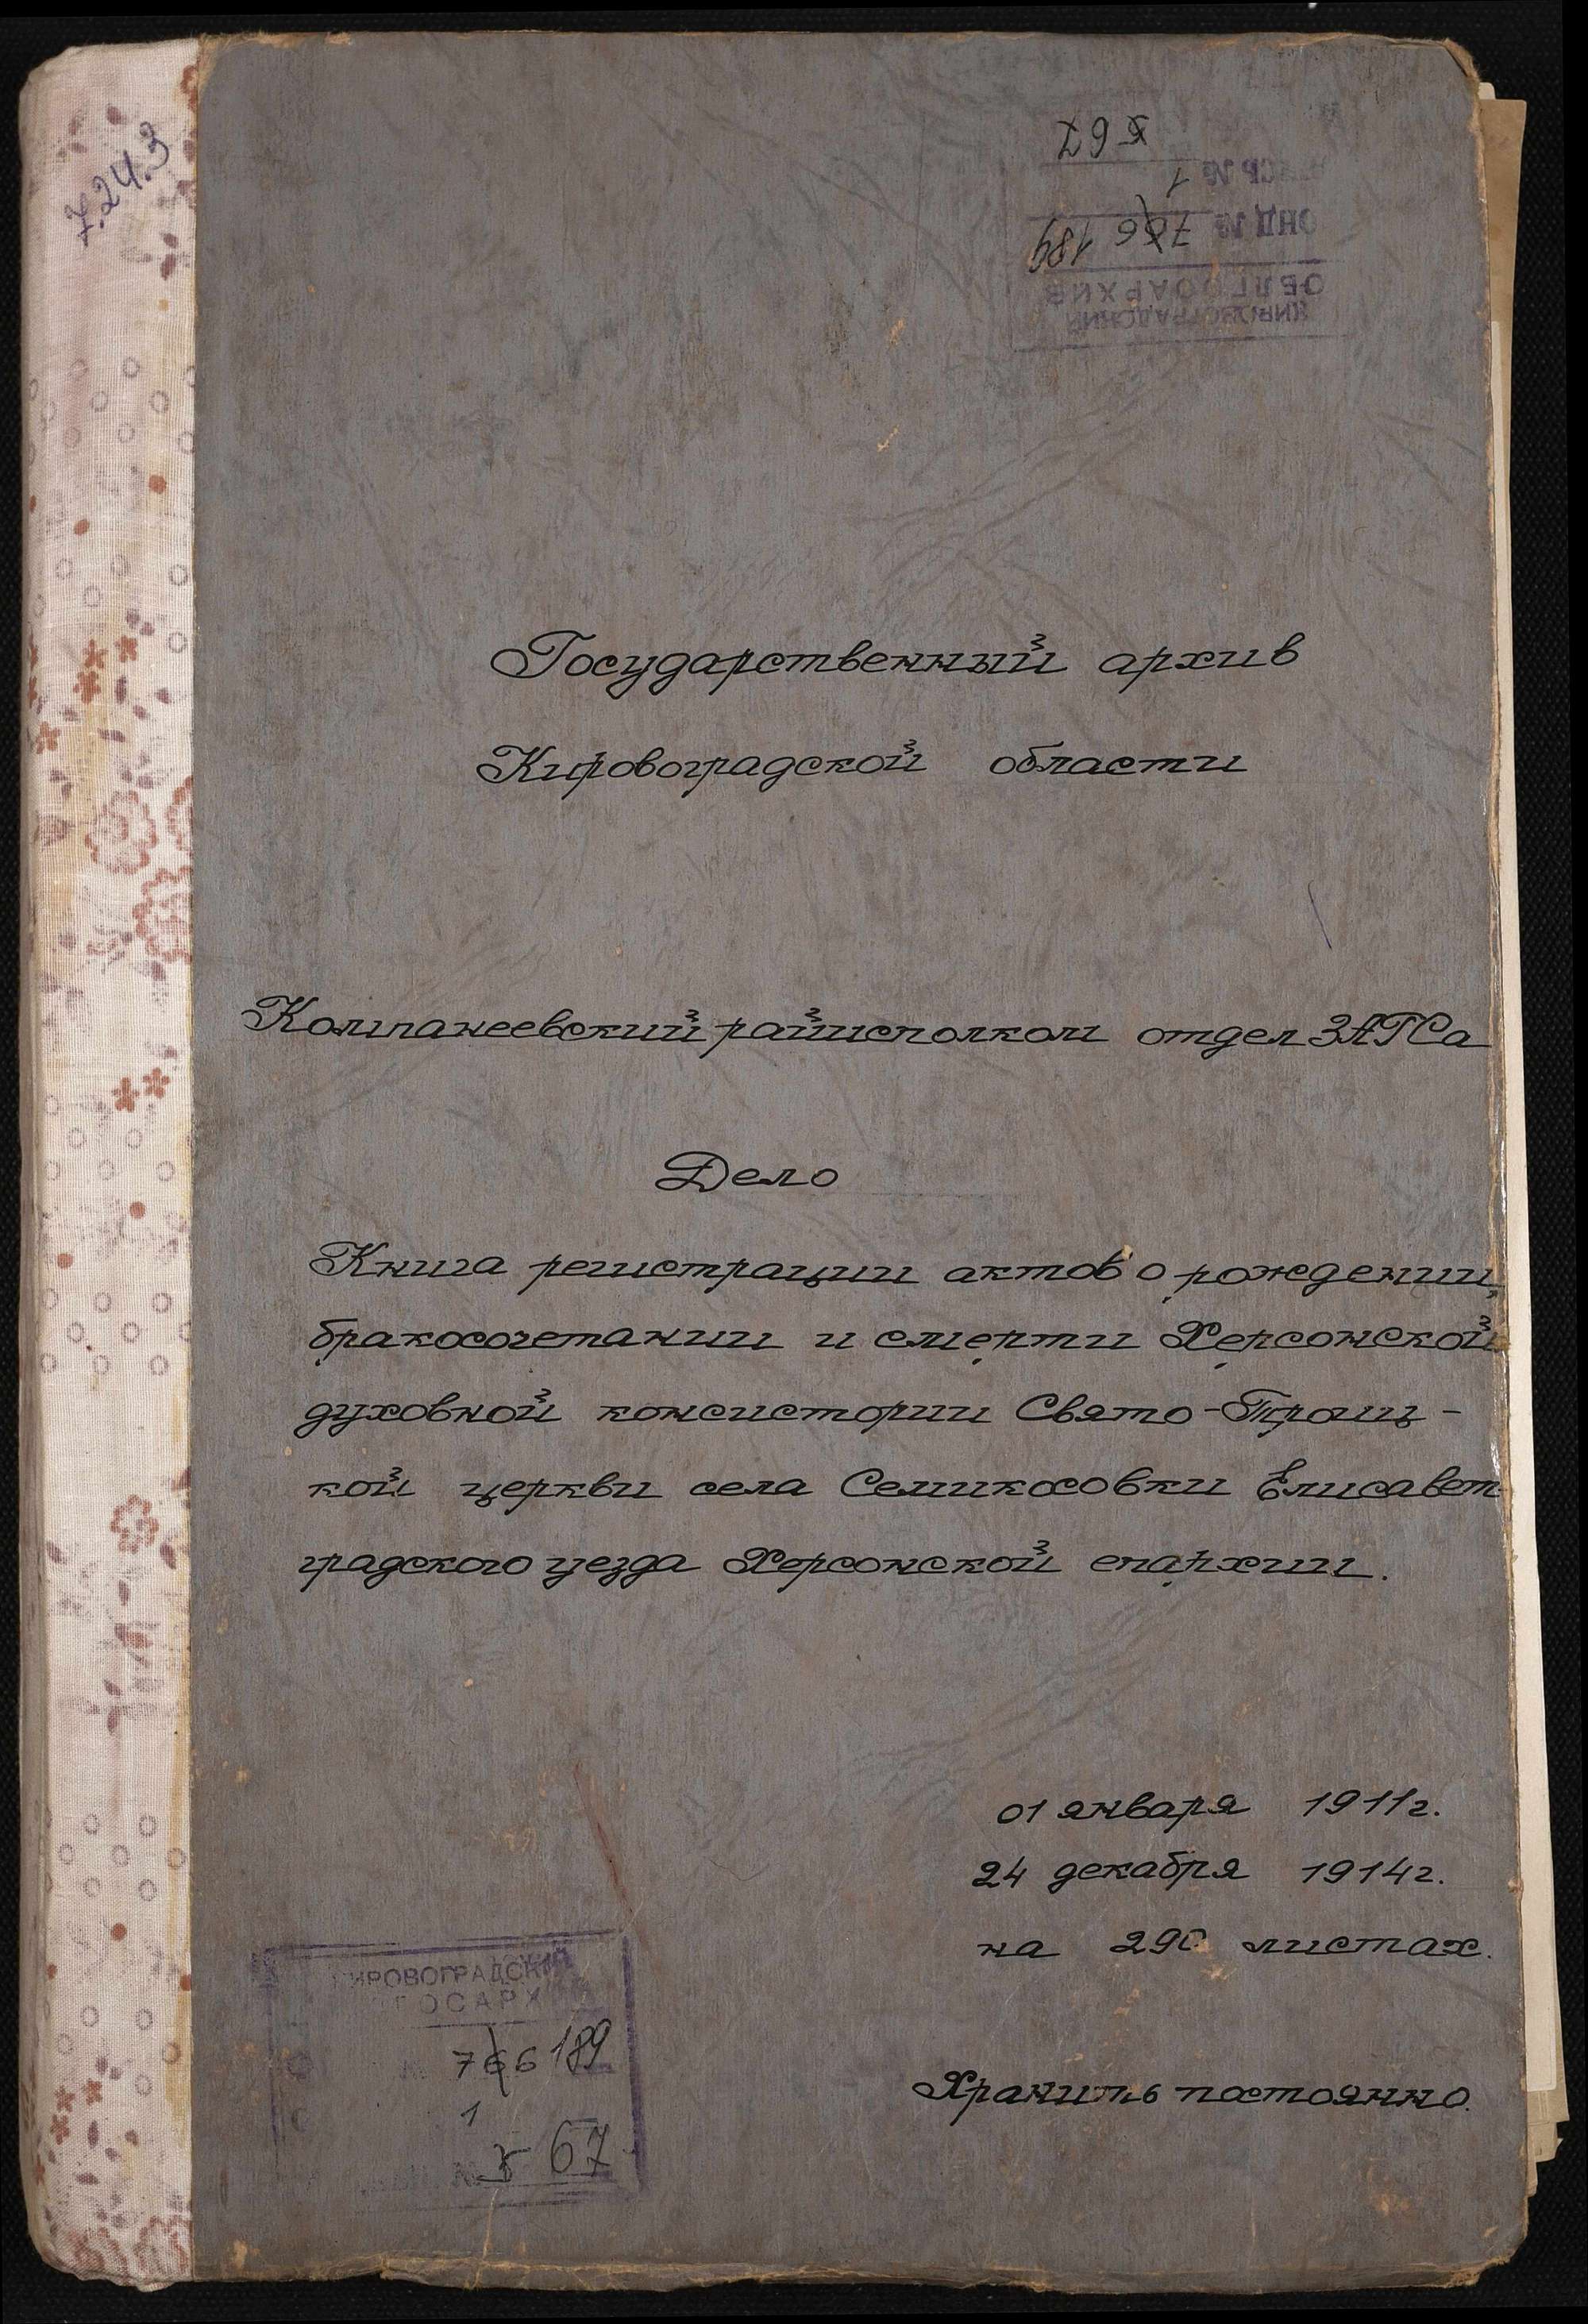 7.24.3
КИРОВОГРАДСКИЙ
ОБЛГОСАРХИВ
ФОНД № 766 189
ОПИСЬ № 1
5 67
Государственный архив
Кировоградской области
Компанеевский райисполком отдел ЗАГСа
Дело
Книга регистрации актов о рождении,
бракосочетании и смерти Херсонской
духовной консистории Свято-Троиц-
кой церкви села Семикосовки Елисавет-
градского уезда Херсонской епархии.
01 января 1911г.
24 декабря 1914г.
на 290 листах.
Хранить постоянно.
КИРОВОГРАДСКИЙ
ГОСАРХ
№ 766 189
1
№ 5 67